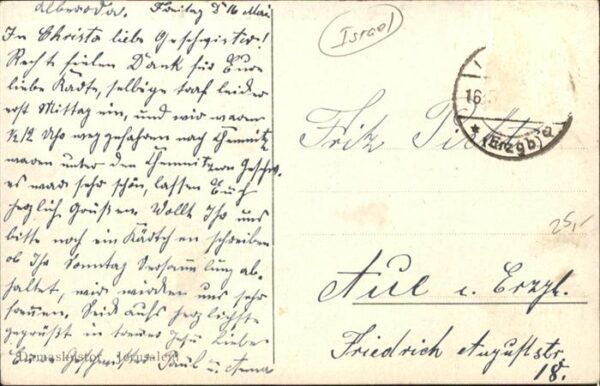 Albernoda. Freitag d 16 Mai.
In Christo liebe Geschwister!
Recht vielen Dank für Eure
liebe Kärtte, selbige traf leider
erst Mittag ein, und wir waren
1/2 2 Uhr weggefahren nach Chemnitz
waren unter den Chemnitzern Geschw.
es war sehr schön, lassen Euch
herzlich Grüßen. Wollt Ihr uns
bitte noch ein Kärtchen schreiben
ob Ihr Sonntag Versammlung ab-
haltet, wir würden uns sehr
freuen. Seid aufs herzlichste
gegrüßt in treuer Jesu Liebe
Eure Geschwister Paul u. Anna
Damaskustor. Jerusalem
Israel
16.5
* (Erzgb) a
Fritz
25,-
Aue i. Erzg.
Friedrich Auguststr.
18.